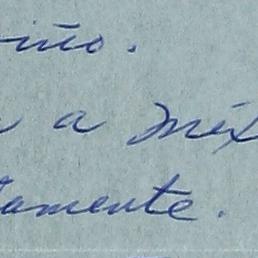 iño.
a méx
tamente.